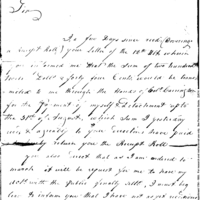 Sir
A few Days since recd (Covering
a Receipt Roll) your Letter of the 10th Ulto wherein
you informed me that the Sum of two hundred
Dolls & forty four Cents would be trans
mitted to me through the Hands of
for the payment of myself & Detachment upto
the 31st of August, which Sum I yesterday
recd & agreeably to your Directions have paid
& hereby return you the Receipt Roll
You also that as I am ordered to
march it will be requisite for me to have my
accts with the Public finally settled, I must beg
leave to inform you that I have not